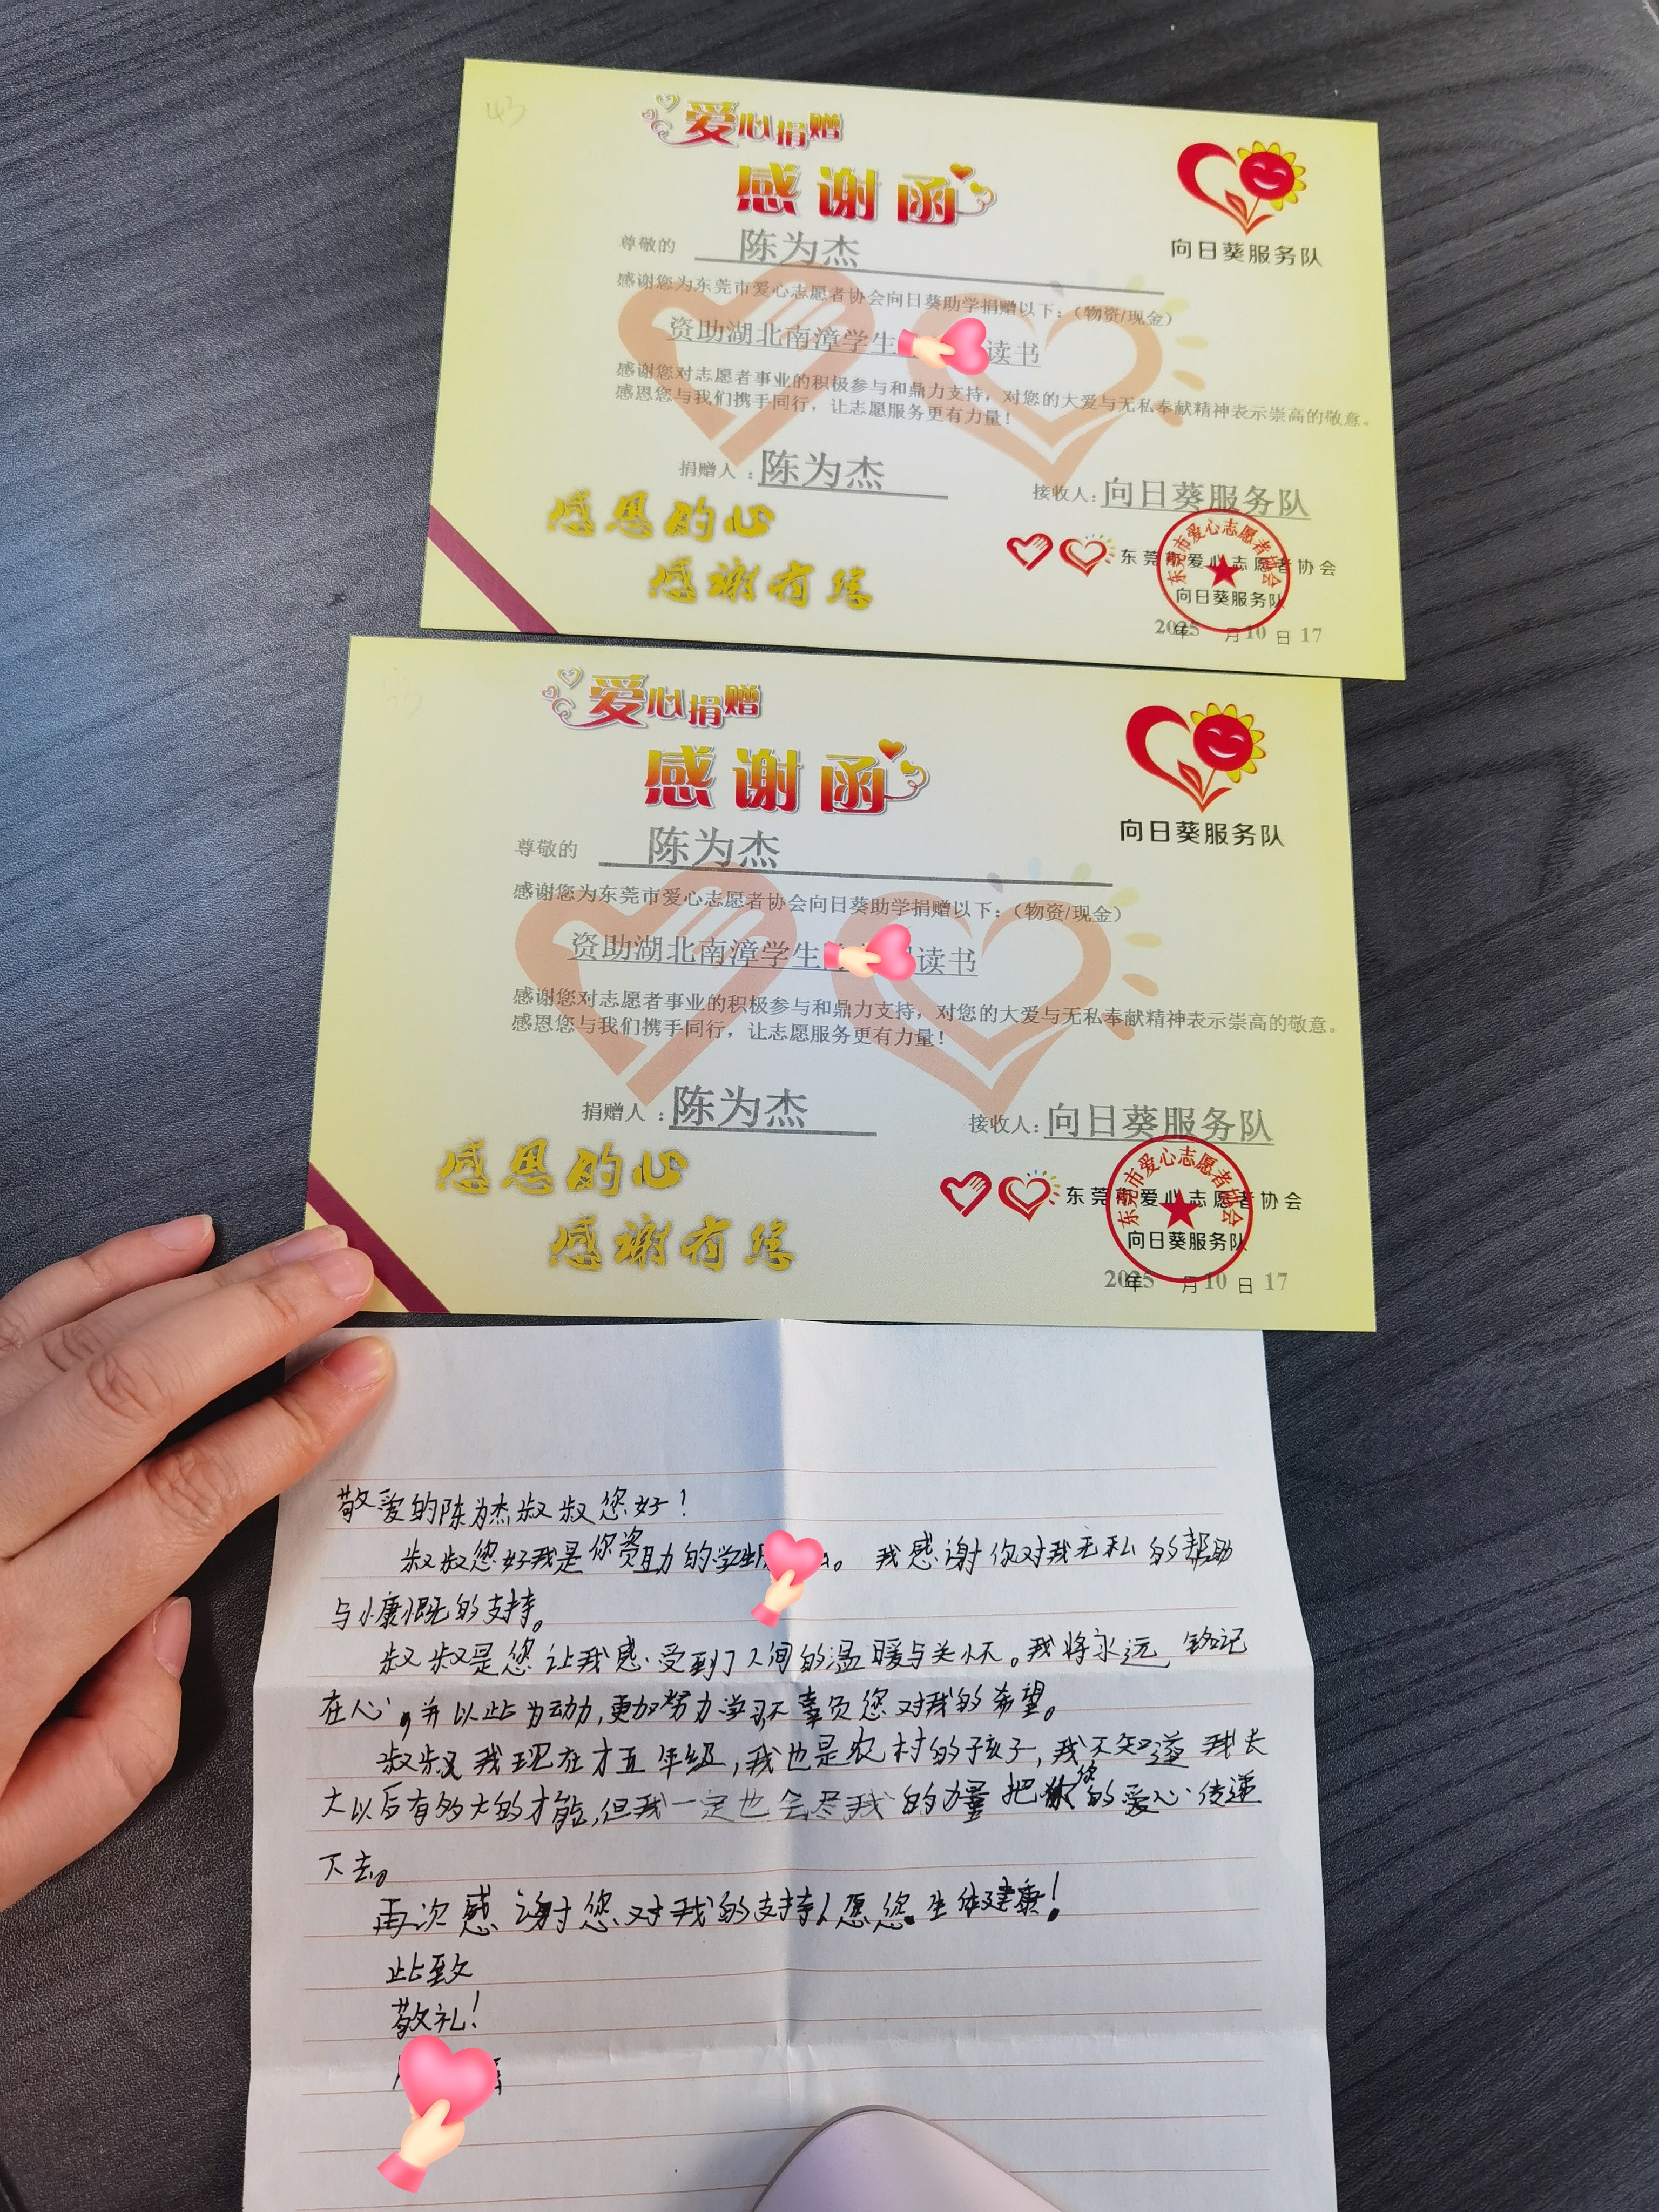 43
爱心捐赠
感谢函
向日葵服务队
尊敬的 陈为杰
感谢您为东莞市爱心志愿者协会向日葵助学捐赠以下:(物资/现金)
资助湖北南漳学生 读书
感谢您对志愿者事业的积极参与和鼎力支持,对您的大爱与无私奉献精神表示崇高的敬意。
感恩您与我们携手同行,让志愿服务更有力量!
捐赠人:陈为杰
接收人:向日葵服务队
感恩的心
感谢有您
东莞市爱心志愿者协会
东莞市爱心志愿者协会
向日葵服务队
2025年 月10日17
爱心捐赠
感谢函
向日葵服务队
尊敬的 陈为杰
感谢您为东莞市爱心志愿者协会向日葵助学捐赠以下:(物资/现金)
资助湖北南漳学生 读书
感谢您对志愿者事业的积极参与和鼎力支持,对您的大爱与无私奉献精神表示崇高的敬意。
感恩您与我们携手同行,让志愿服务更有力量!
捐赠人:陈为杰
接收人:向日葵服务队
感恩的心
感谢有您
东莞市爱心志愿者协会
东莞市爱心志愿者协会
向日葵服务队
2025年 月10日17
敬爱的陈为杰叔叔您好!
叔叔您好我是你资助的学生 。我感谢你对我无私的帮助
与慷慨的支持。
叔叔是您让我感受到了人间的温暖与关怀。我将永远铭记
在心,并以此为动力,更加努力学习不辜负您对我的希望。
叔叔我现在才五年级,我也是农村的孩子,我不知道我长
大以后有多大的才能,但我一定也会尽我的力量把您的爱心传递
下去。
再次感谢您对我的支持,愿您生体健康!
此致
敬礼!